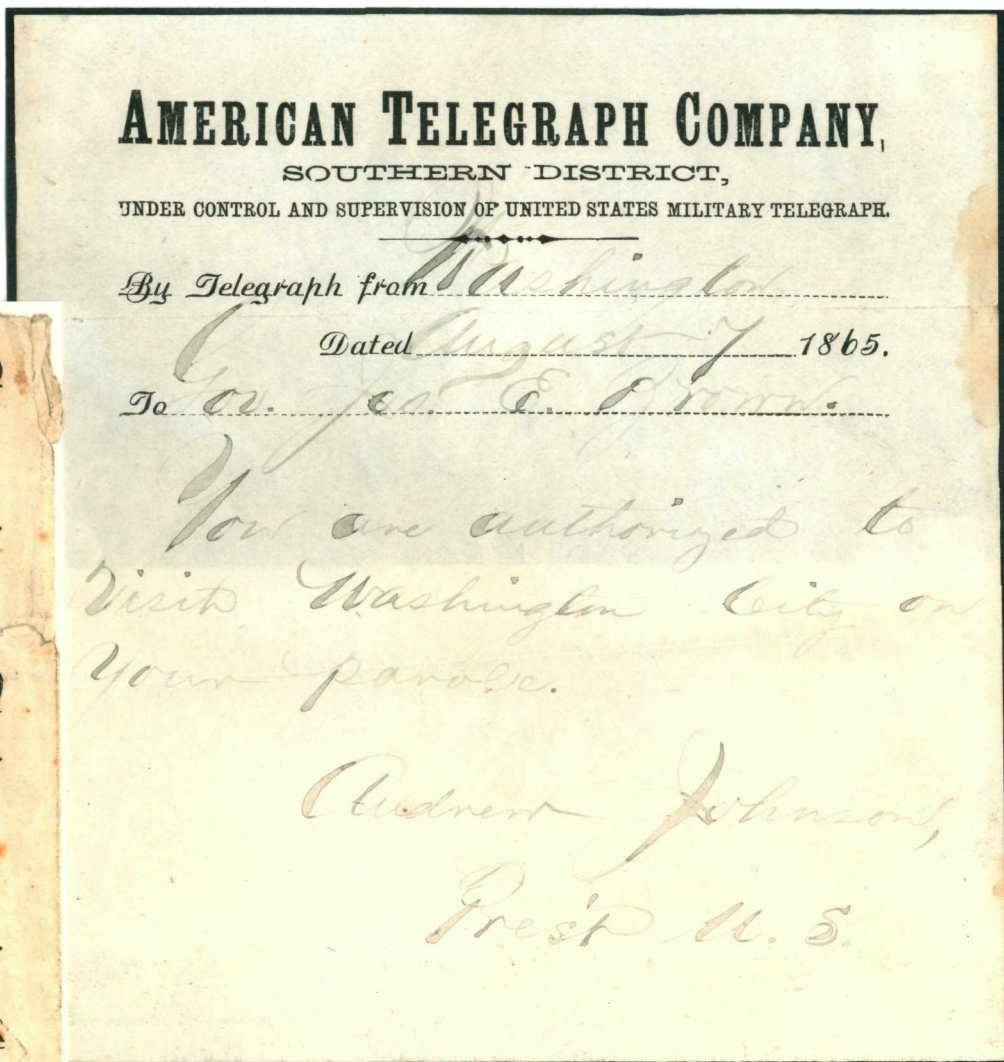 AMERICAN TELEGRAPH COMPANY,
SOUTHERN DISTRICT,
UNDER CONTROL AND SUPERVISION OF UNITED STATES MILITARY TELEGRAPH.
By Telegraph from Washington
Dated August 7 1865.
To Gov. Jos. E. Brown.
You are authorized to
Visit Washington City on
Your parole.
Andrew Johnson,
Pres't U. S.